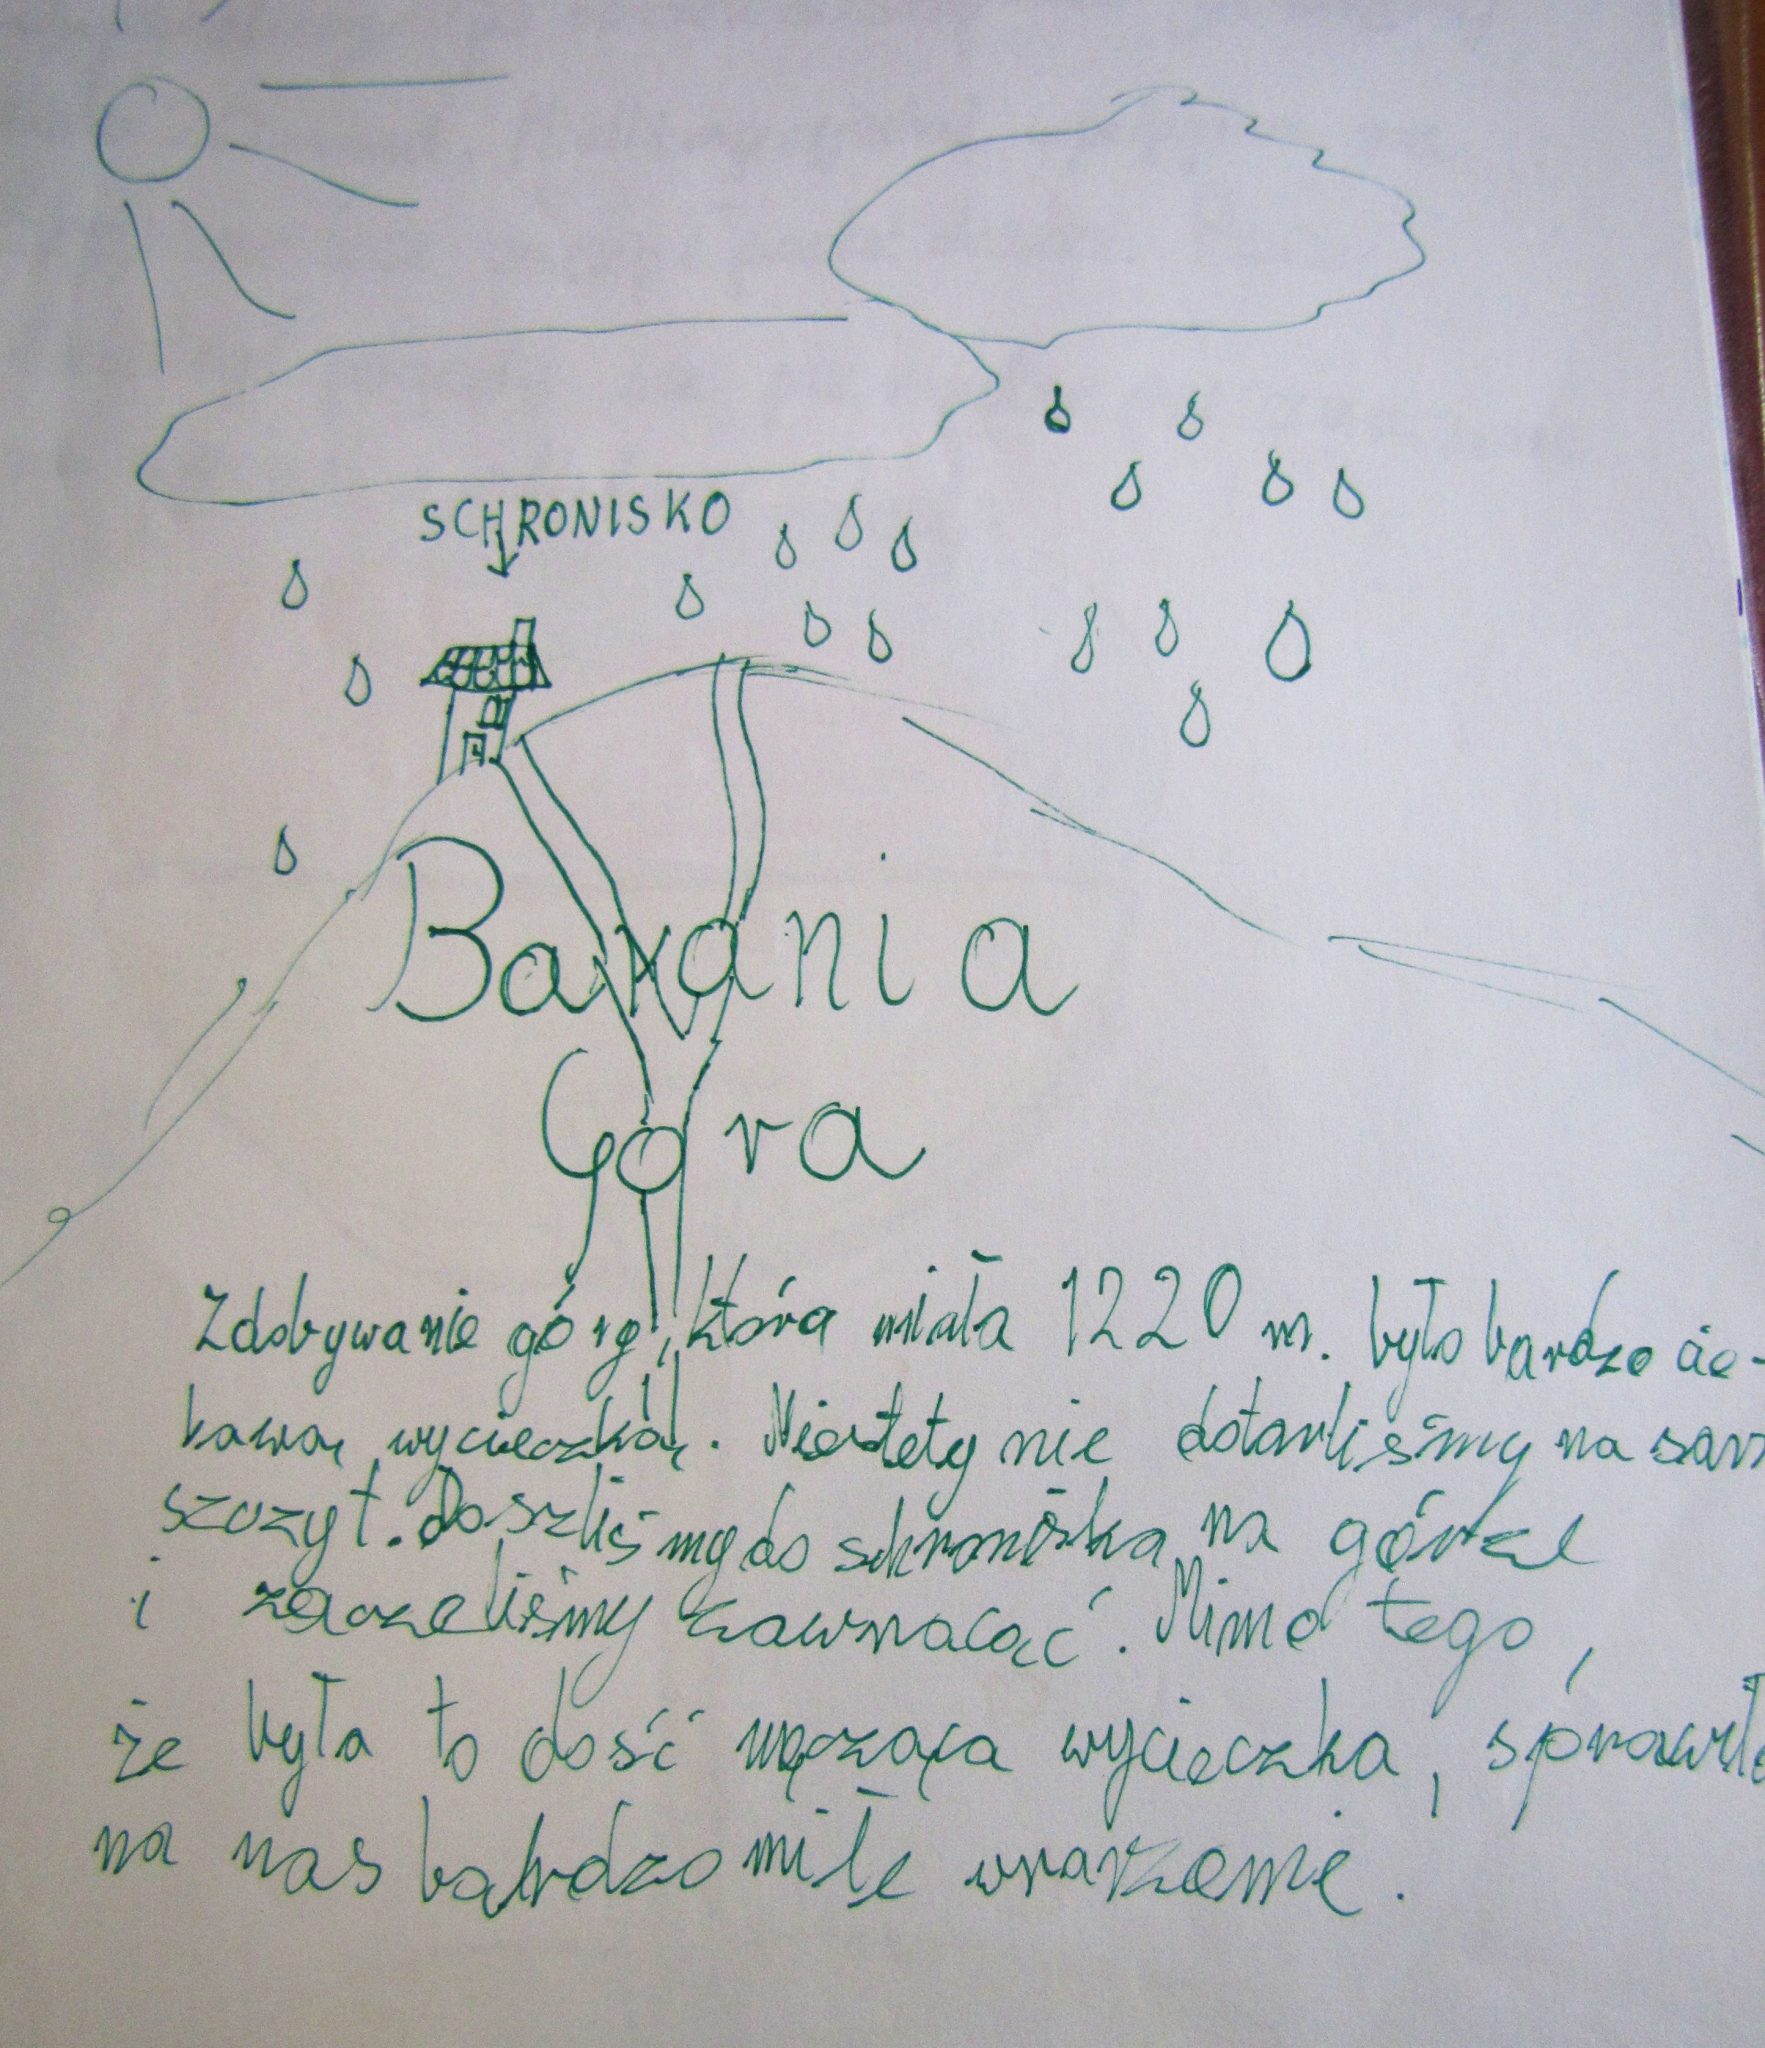 SCHRONISKO
Barania
Góra
Zdobywanie góry, która miała 1220 m. było bardzo cie-
kawą wycieczką. Niestety nie dotarliśmy na sam
szczyt. Doszliśmy do schroniska na górze
i zaczeliśmy zawracać. Mimo tego,
że była to dość męcząca wycieczka, sprawiła
na nas bardzo miłe wrarzenie.